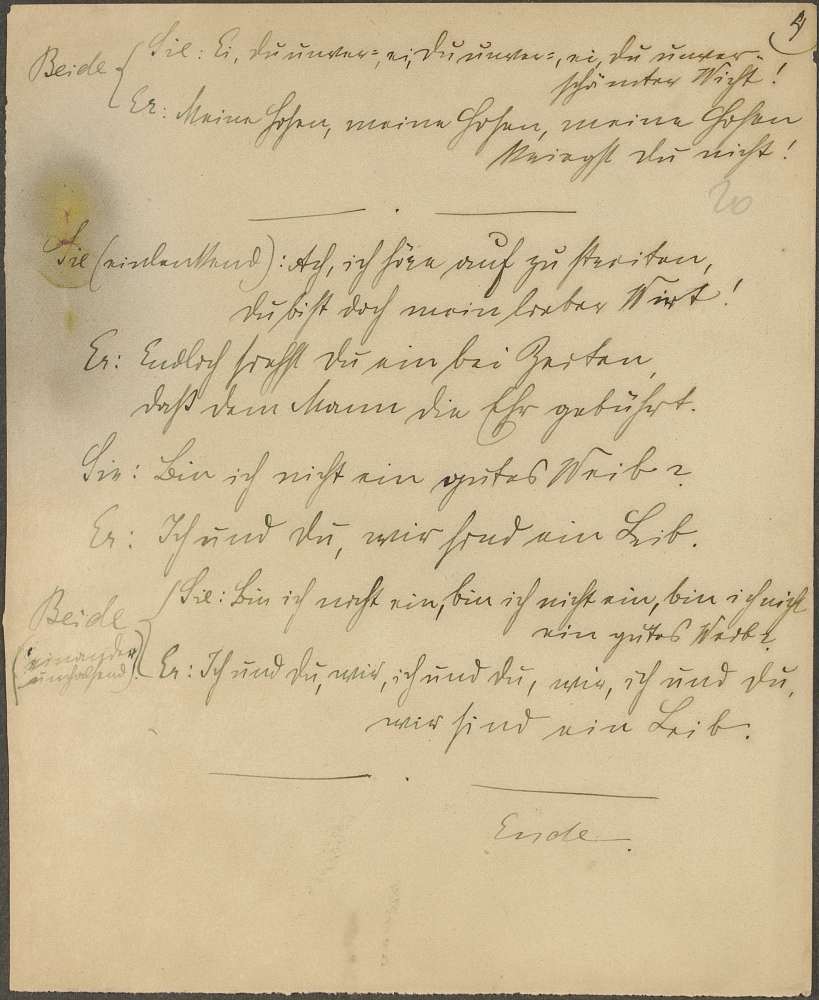 4
Beide { Sie: Ei, du unver=, ei, du unver=, ei, du unver-
schämter Wicht!
Er: Meine Hosen, meine Hosen, meine Hosen
kriegst du nicht!
20
Sie (einlenkend): Ach, ich höre auf zu streiten,
du bist doch mein lieber Wirt!
Er: Endlich siehst du ein bei Zeiten,
daß dem Mann die Ehr gebührt.
Sie: Bin ich nicht ein gutes Weib?
Er: Ich und du, wir sind ein Leib.
Beide { Sie: Bin ich nicht ein, bin ich nicht ein, bin ich nicht
ein gutes Weib?
(einander
umhalsend) Er: Ich und du, wir, ich und du, wir, ich und du,
wir sind ein Leib.
Ende.